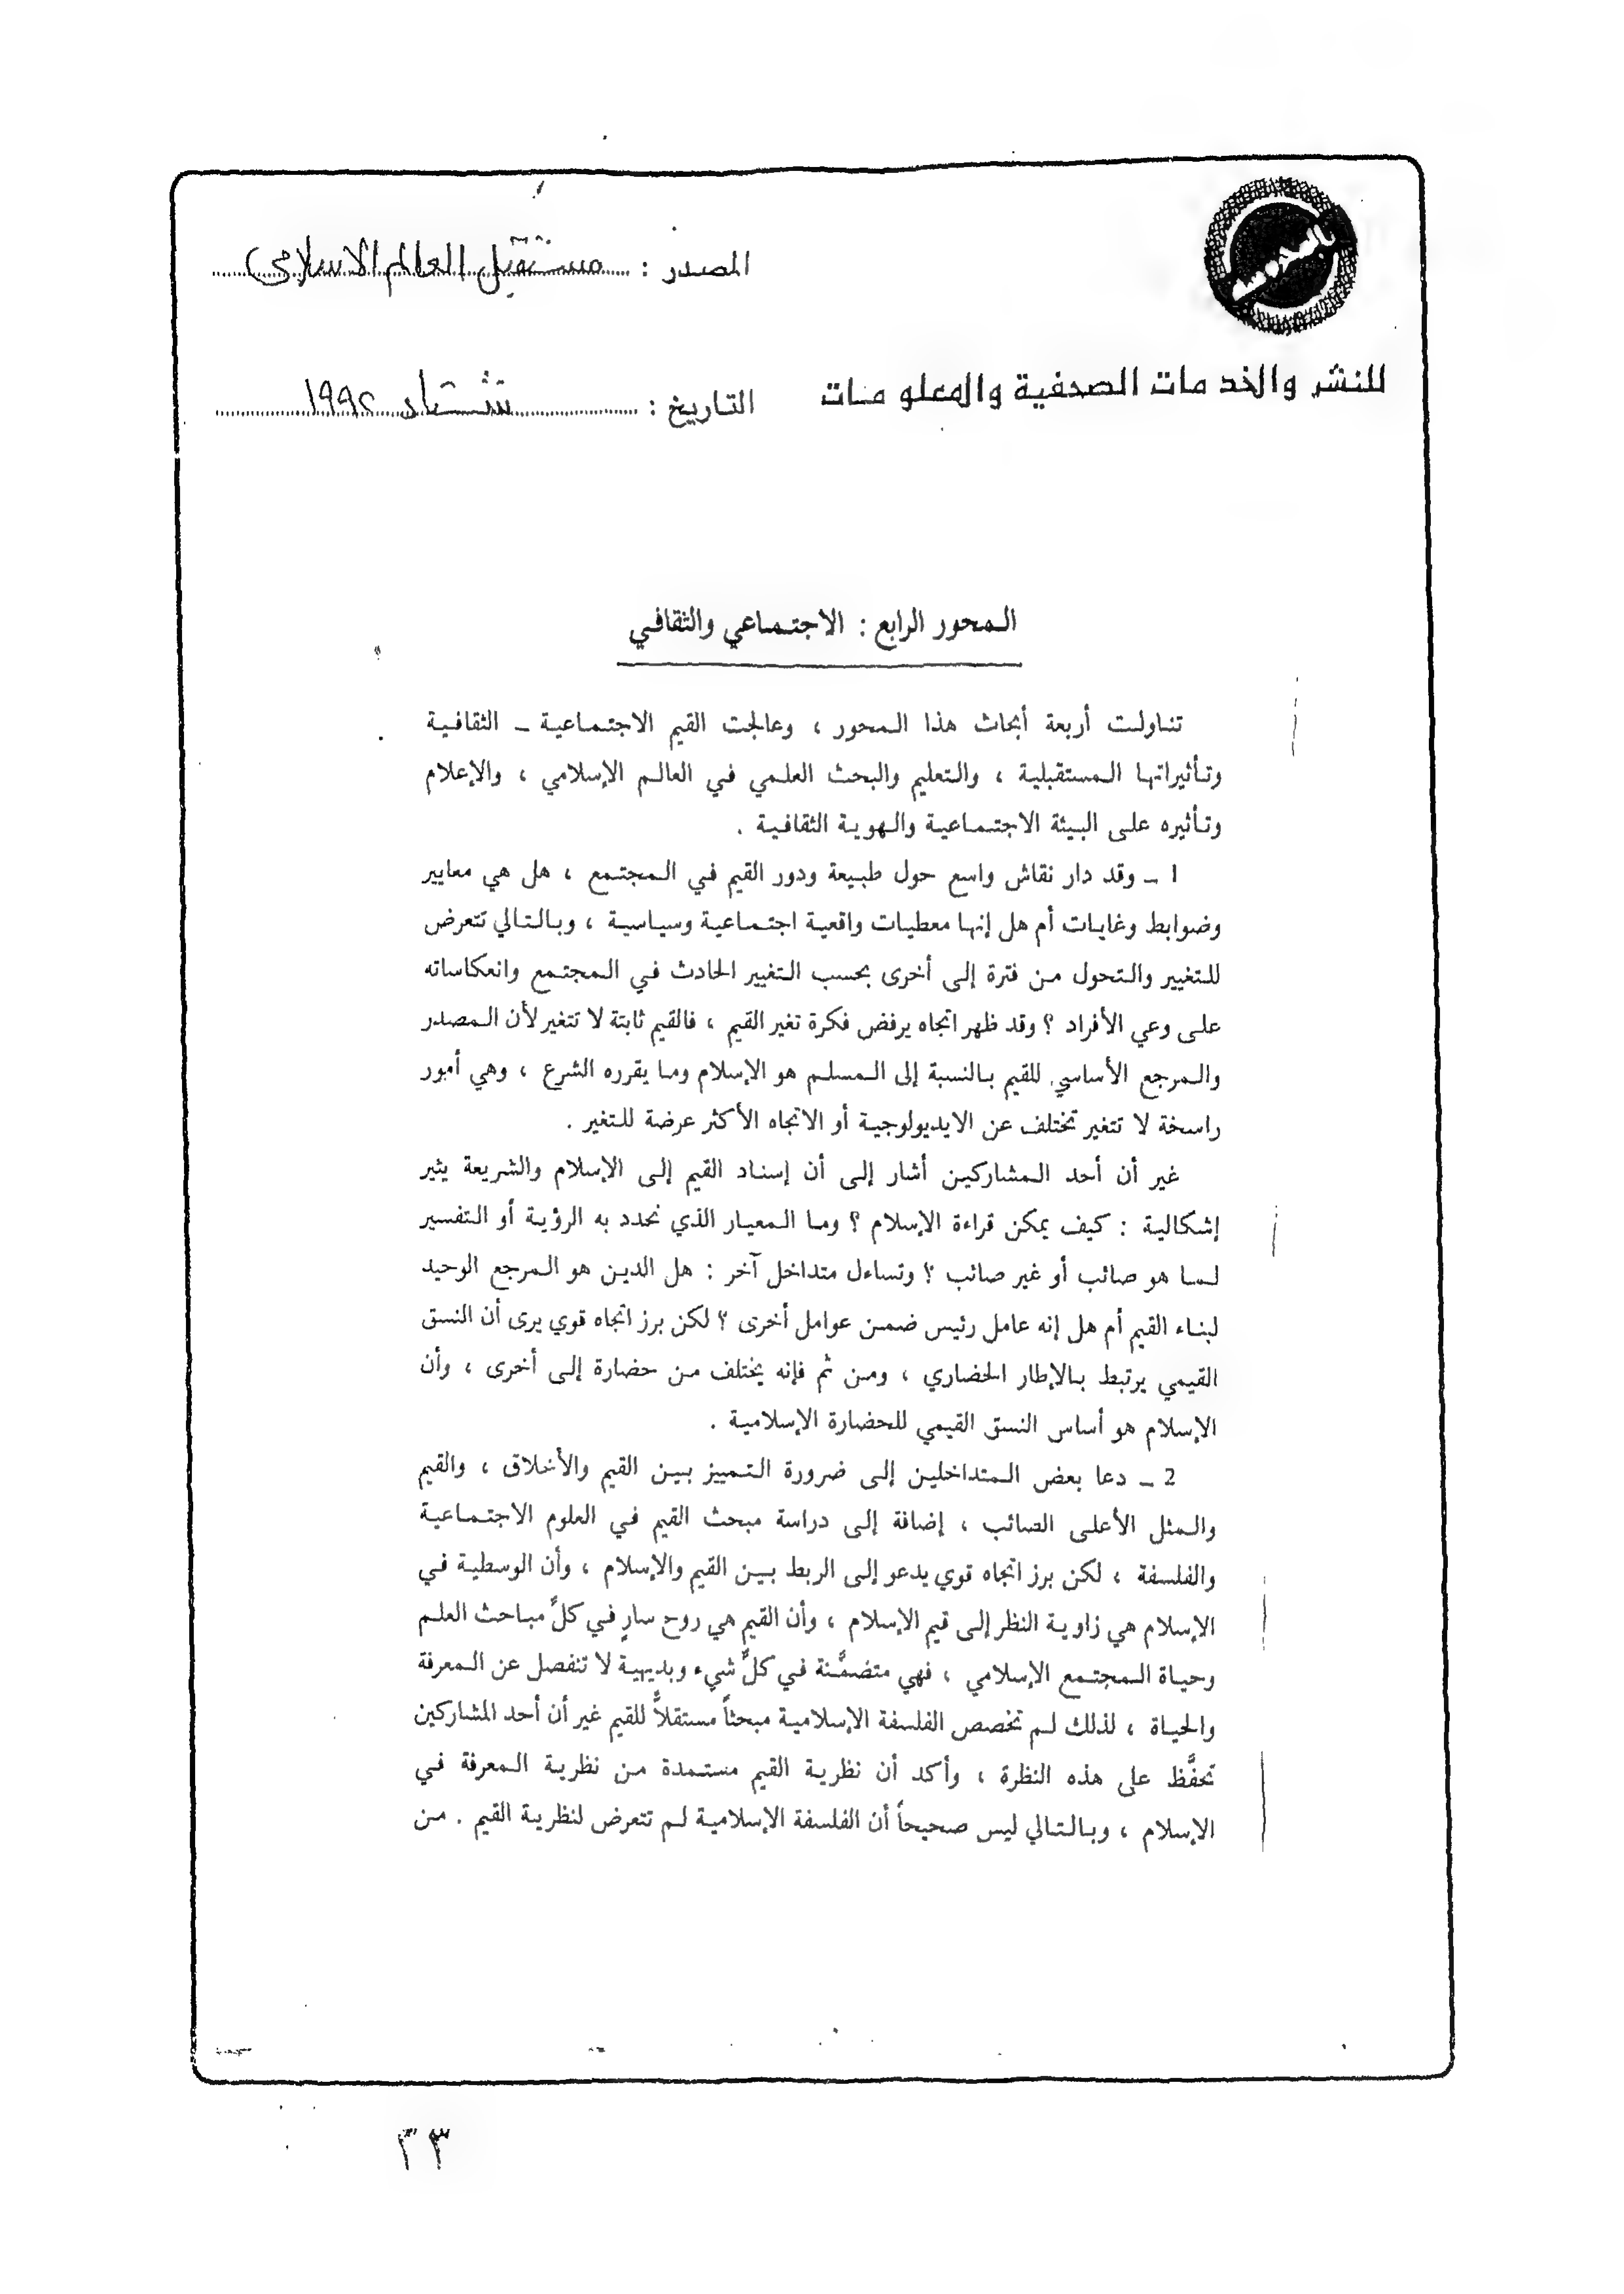 المصدر : مستقبل العالم الاسلامي
للنشر والخدمات الصحفية والمعلومات
التاريخ : شتاء ١٩٩٢
المحور الرابع : الاجتماعي والثقافي
تناولت أربعة أبحاث هذا المحور ، وعالجت القيم الاجتماعية ــ الثقافية
وتأثيراتها المستقبلية ، والتعليم والبحث العلمي في العالم الإسلامي ، والإعلام
وتأثيره على البيئة الاجتماعية والهوية الثقافية .
1 ــ وقد دار نقاش واسع حول طبيعة ودور القيم في المجتمع ، هل هي معايير
وضوابط وغايات أم هل إنها معطيات واقعية اجتماعية وسياسية ، وبالتالي تتعرض
للتغيير والتحول من فترة إلى أخرى بحسب التغيير الحادث في المجتمع وانعكاساته
على وعي الأفراد ؟ وقد ظهر اتجاه يرفض فكرة تغير القيم ، فالقيم ثابتة لا تتغير لأن المصدر
والمرجع الأساسي للقيم بالنسبة إلى المسلم هو الإسلام وما يقرره الشرع ، وهي أمور
راسخة لا تتغير تختلف عن الايديولوجية أو الاتجاه الأكثر عرضة للتغير .
غير أن أحد المشاركين أشار إلى أن إسناد القيم إلى الإسلام والشريعة يثير
إشكالية : كيف يمكن قراءة الإسلام ؟ وما المعيار الذي نحدد به الرؤية أو التفسير
لما هو صائب أو غير صائب ؟ وتساءل متداخل آخر : هل الدين هو المرجع الوحيد
لبناء القيم أم هل إنه عامل رئيس ضمن عوامل أخرى ؟ لكن برز اتجاه قوي يرى أن النسق
القيمي يرتبط بالإطار الحضاري ، ومن ثم فإنه يختلف من حضارة إلى أخرى ، وأن
الإسلام هو أساس النسق القيمي للحضارة الإسلامية .
2 ــ دعا بعض المتداخلين إلى ضرورة التمييز بين القيم والأخلاق ، والقيم
والمثل الأعلى الصائب ، إضافة إلى دراسة مبحث القيم في العلوم الاجتماعية
والفلسفة ، لكن برز اتجاه قوي يدعو إلى الربط بين القيم والإسلام ، وأن الوسطية في
الإسلام هي زاوية النظر إلى قيم الإسلام ، وأن القيم هي روح سارٍ في كلِّ مباحث العلم
وحياة المجتمع الإسلامي ، فهي متضمَّنة في كلِّ شيء وبديهية لا تنفصل عن المعرفة
والحياة ، لذلك لم تخصص الفلسفة الإسلامية مبحثاً مستقلاًّ للقيم غير أن أحد المشاركين
تحفَّظ على هذه النظرة ، وأكد أن نظرية القيم مستمدة من نظرية المعرفة في
الإسلام ، وبالتالي ليس صحيحاً أن الفلسفة الإسلامية لم تتعرض لنظرية القيم . من
٣٣